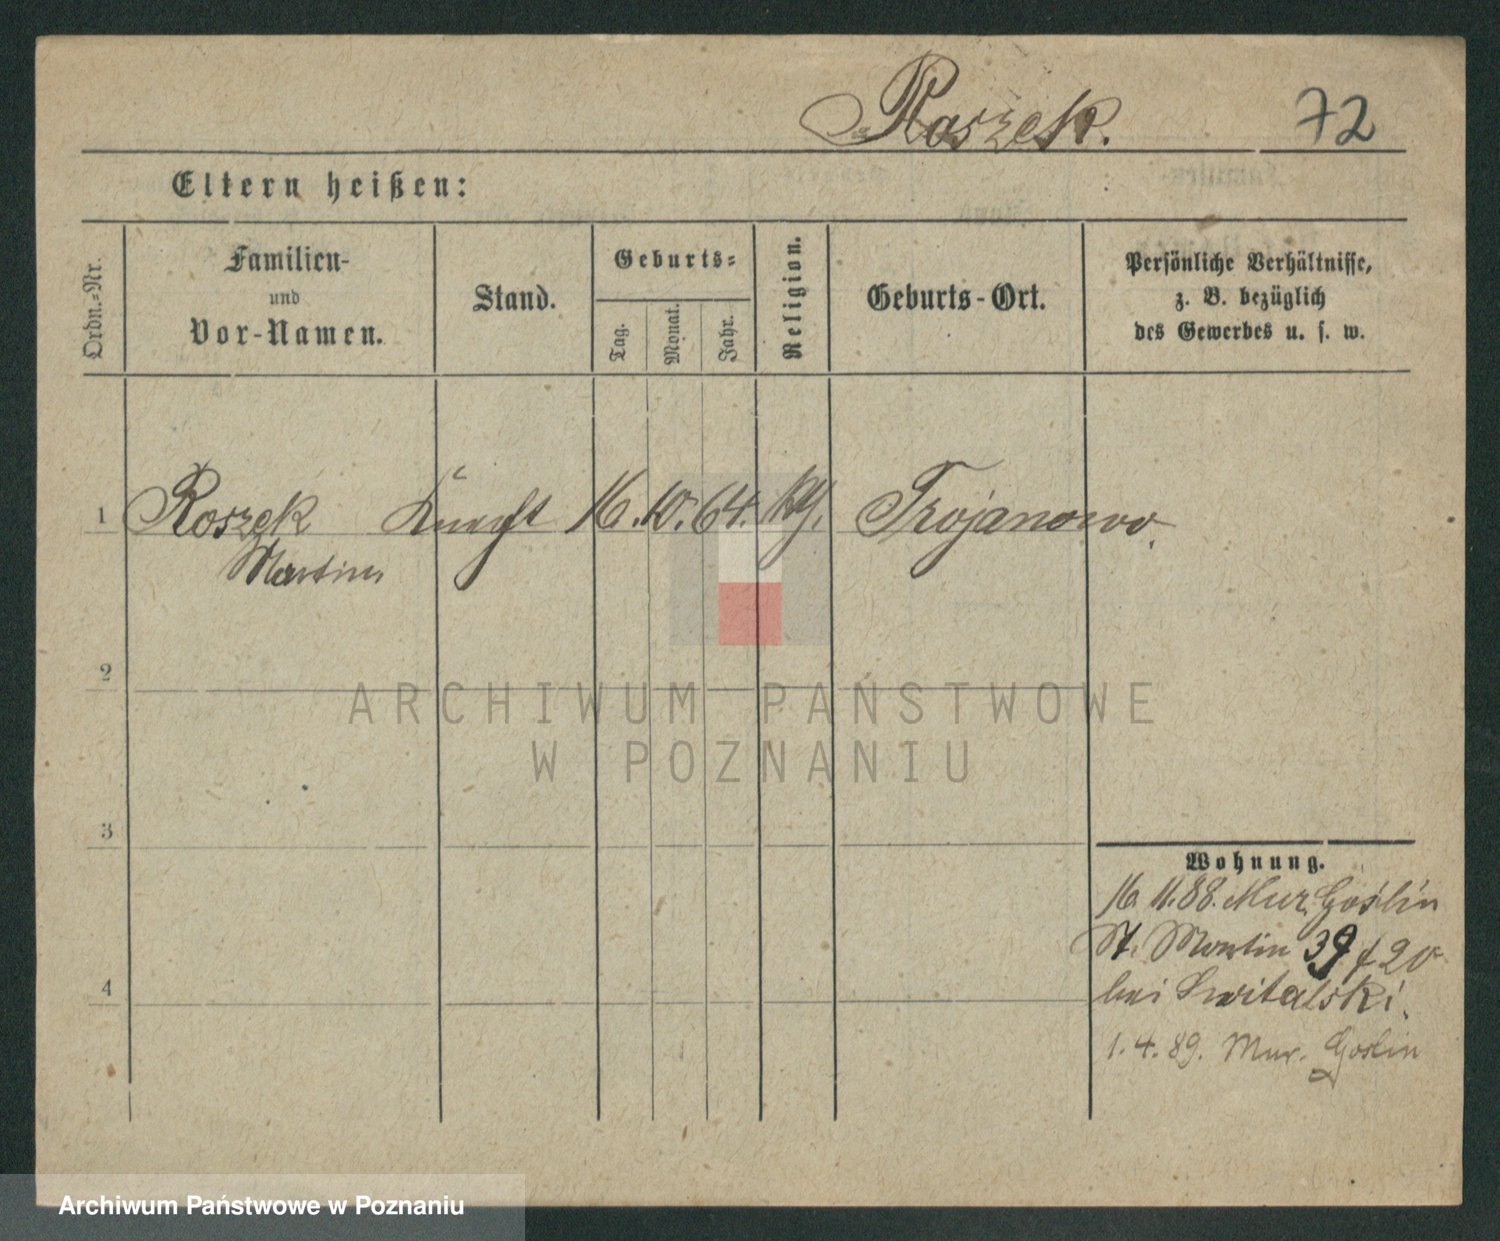 Roszek. 72
Eltern heißen:
Ordn.=Nr.
Familien-
und
Vor-Namen.
Stand.
Geburts=
Tag.
Monat.
Jahr.
Religion.
Geburts-Ort.
Persönliche Verhältnisse,
z. B. bezüglich
des Gewerbes u. s. w.
1 Roszek Knecht 16. 10. 64. kth. Trojanowo.
Martin
2
ARCHIWUM PAŃSTWOWE
W POZNANIU
3
4
Wohnung.
16. 11. 88. Mur. Goślin
St. Martin 39 f 20
bei Kwitalski.
1. 4. 89. Mur. Goslin
Archiwum Państwowe w Poznaniu